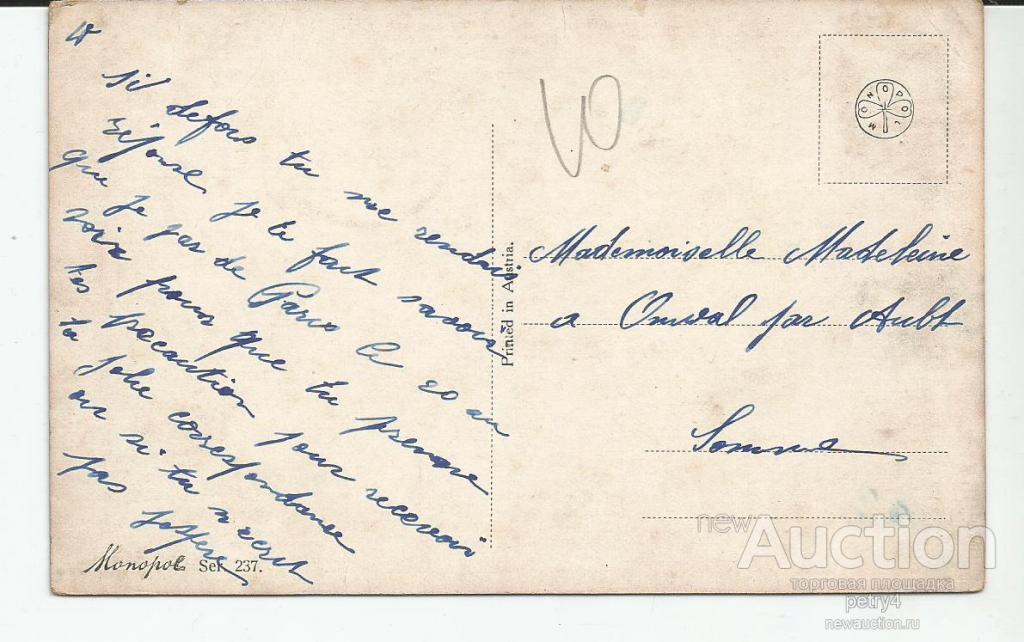 si defois tu me rendais
réponse je te fait savoir
que je par de Paris le 20 au
soir pour que tu prenne
tes precaution pour recevoir
ta jolie correspondance
ou si tu n'ecrit
pas jespere
40
MONOPOL
Printed in Austria.
Mademoiselle Madeleine
a Omval par Ault
Somme
Monopol Ser. 237.
newAuction
торговая площадка
petry4
newauction.ru